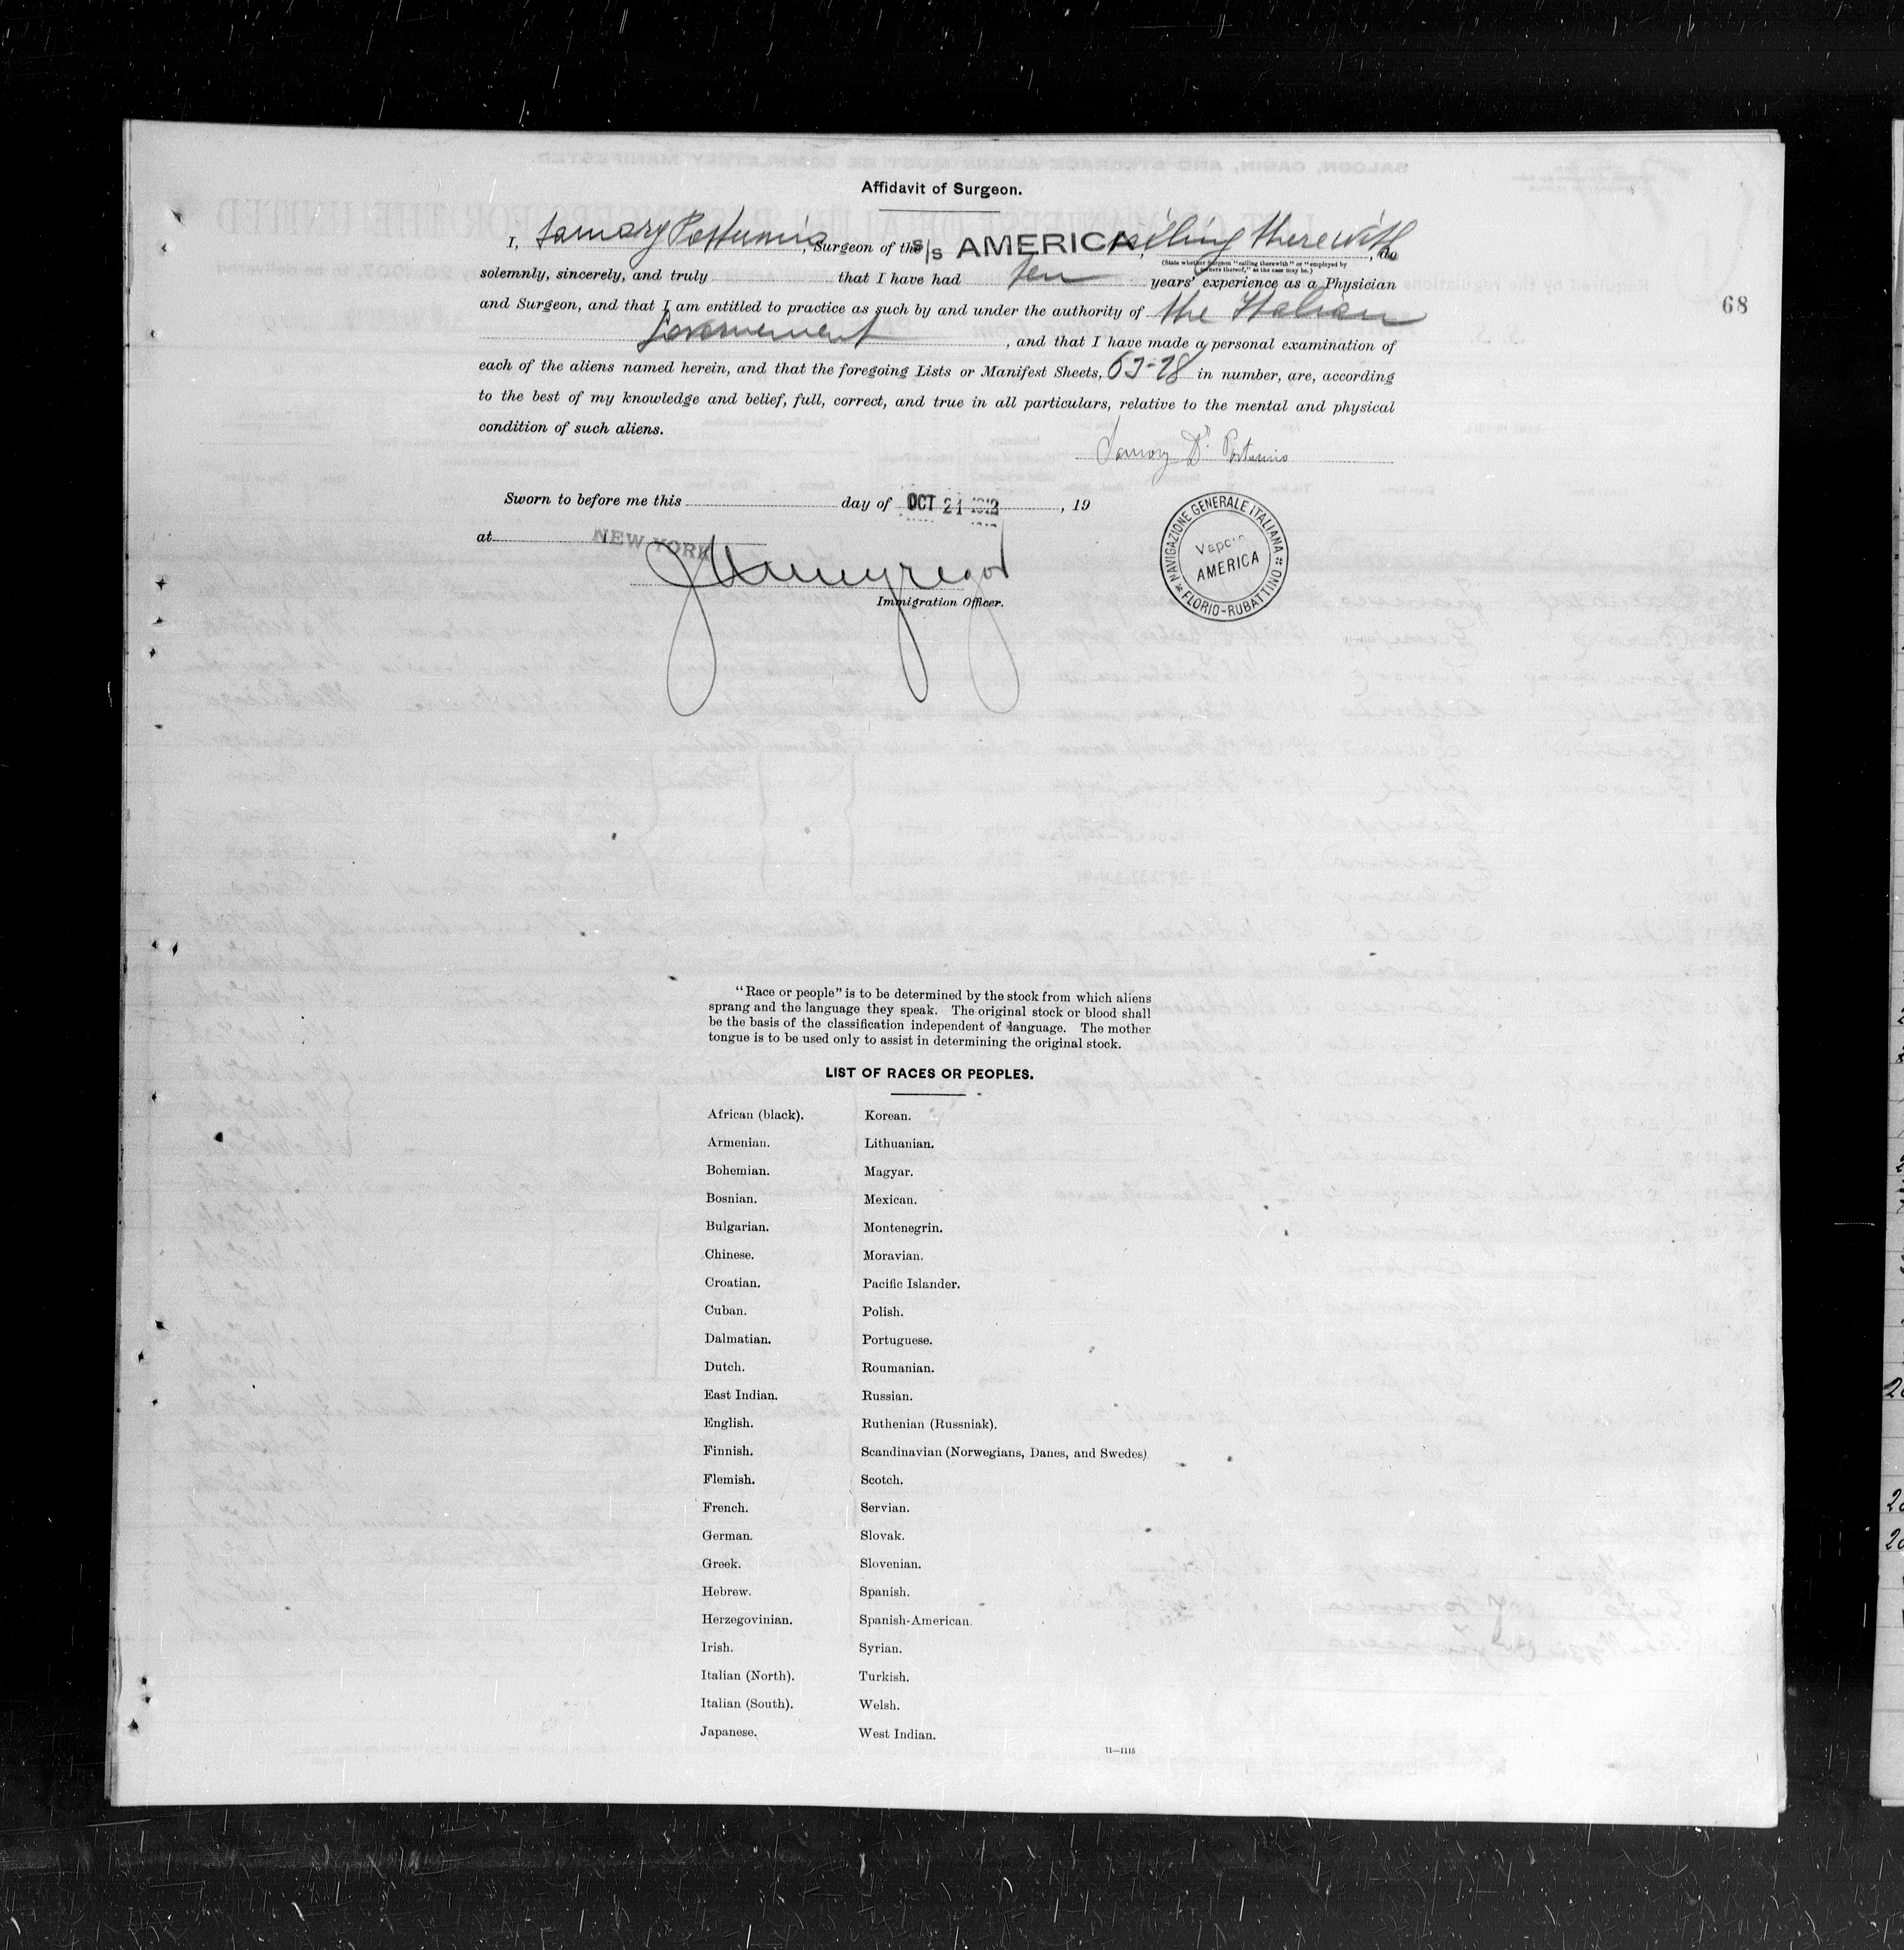 Affidavit of Surgeon.
I, Samory Postumio, Surgeon of the S/S AMERICA, sailing therewith, do
(State whether Surgeon "sailing therewith" or "employed by owners thereof," as the case may be.)
solemnly, sincerely, and truly that I have had ten years' experience as a Physician
and Surgeon, and that I am entitled to practice as such by and under the authority of the Italian
Governement, and that I have made a personal examination of
68
each of the aliens named herein, and that the foregoing Lists or Manifest Sheets, in number, are, according
to the best of my knowledge and belief, full, correct, and true in all particulars, relative to the mental and physical
condition of such aliens.
Samory Dr. Postumio
Sworn to before me this day of OCT 21 1912, 19
at NEW YORK
Immigration Officer.
NAVIGAZIONE GENERALE ITALIANA
Vapore
AMERICA
FLORIO-RUBATTINO
"Race or people" is to be determined by the stock from which aliens
sprang and the language they speak. The original stock or blood shall
be the basis of the classification independent of language. The mother
tongue is to be used only to assist in determining the original stock.
LIST OF RACES OR PEOPLES.
African (black).
Armenian.
Bohemian.
Bosnian.
Bulgarian.
Chinese.
Croatian.
Cuban.
Dalmatian.
Dutch.
East Indian.
English.
Finnish.
Flemish.
French.
German.
Greek.
Hebrew.
Herzegovinian.
Irish.
Italian (North).
Italian (South).
Japanese.
Korean.
Lithuanian.
Magyar.
Mexican.
Montenegrin.
Moravian.
Pacific Islander.
Polish.
Portuguese.
Roumanian.
Russian.
Ruthenian (Russniak).
Scandinavian (Norwegians, Danes, and Swedes)
Scotch.
Servian.
Slovak.
Slovenian.
Spanish.
Spanish-American.
Syrian.
Turkish.
Welsh.
West Indian.
11—1115